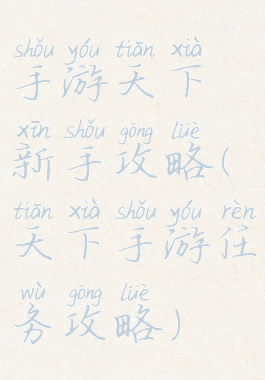 shǒu yóu tiān xià
手游天下
xīn shǒu gōng lüè
新手攻略(
tiān xià shǒu yóu rèn
天下手游任
wù gōng lüè
务攻略)